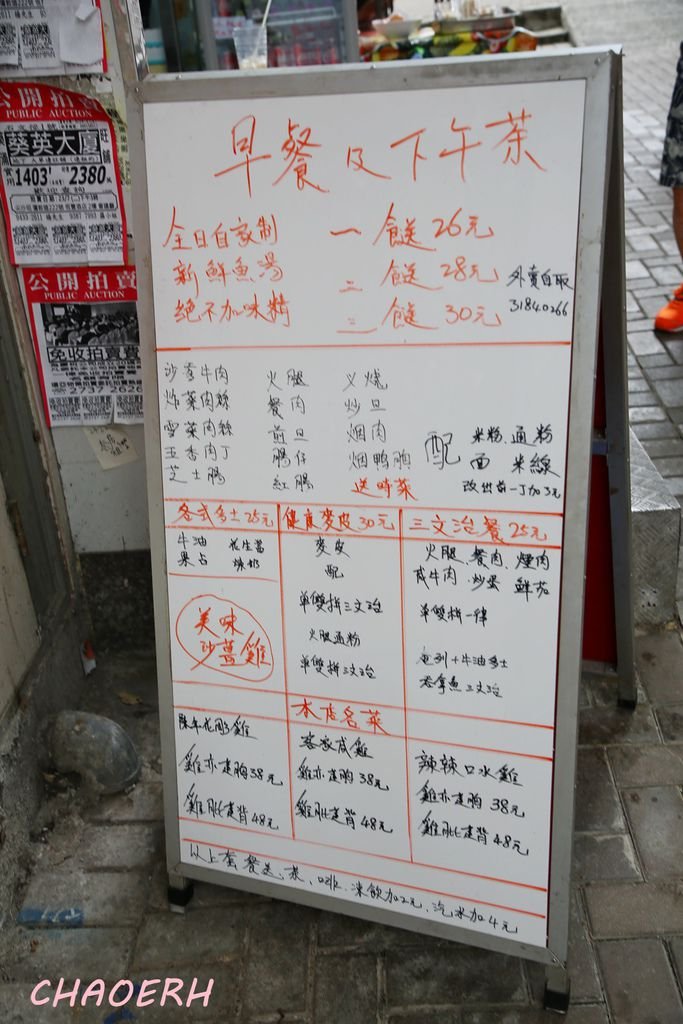 公開拍賣
PUBLIC AUCTION
葵英大廈
1403 2380
公開拍賣
PUBLIC AUCTION
免收拍賣費
2737 2626
早餐及下午茶
全日自家制 一餸26元
新鮮魚湯 二餸28元 外賣自取
絕不加味精 三餸30元 31840266
沙爹牛肉 火腿 义燒
炸菜肉絲 餐肉 炒旦
雪菜肉絲 煎旦 烟肉
五香肉丁 腸仔 烟鴨胸
芝士腸 紅腸 送時菜
配 米粉 通粉
面 米線
改出前一丁加3元
各式多士25元
牛油 花生醬
果占 煉奶
美味
沙薑雞
健康麥皮30元
麥皮
配
單雙拼三文治
火腿通粉
單雙拼三文治
三文治餐25元
火腿、餐肉、煙肉
咸牛肉、炒蛋 鮮茄
單雙拼一律
奄列+牛油多士
吞拿魚三文治
本店名菜
陳年花彫雞
雞亦連胸38元
雞肶連背48元
客家咸雞
雞亦連胸38元
雞肶連背48元
辣辣口水雞
雞亦連胸38元
雞肶連背48元
以上套餐送、茶、啡、凍飲加2元、汽水加4元
CHAOERH